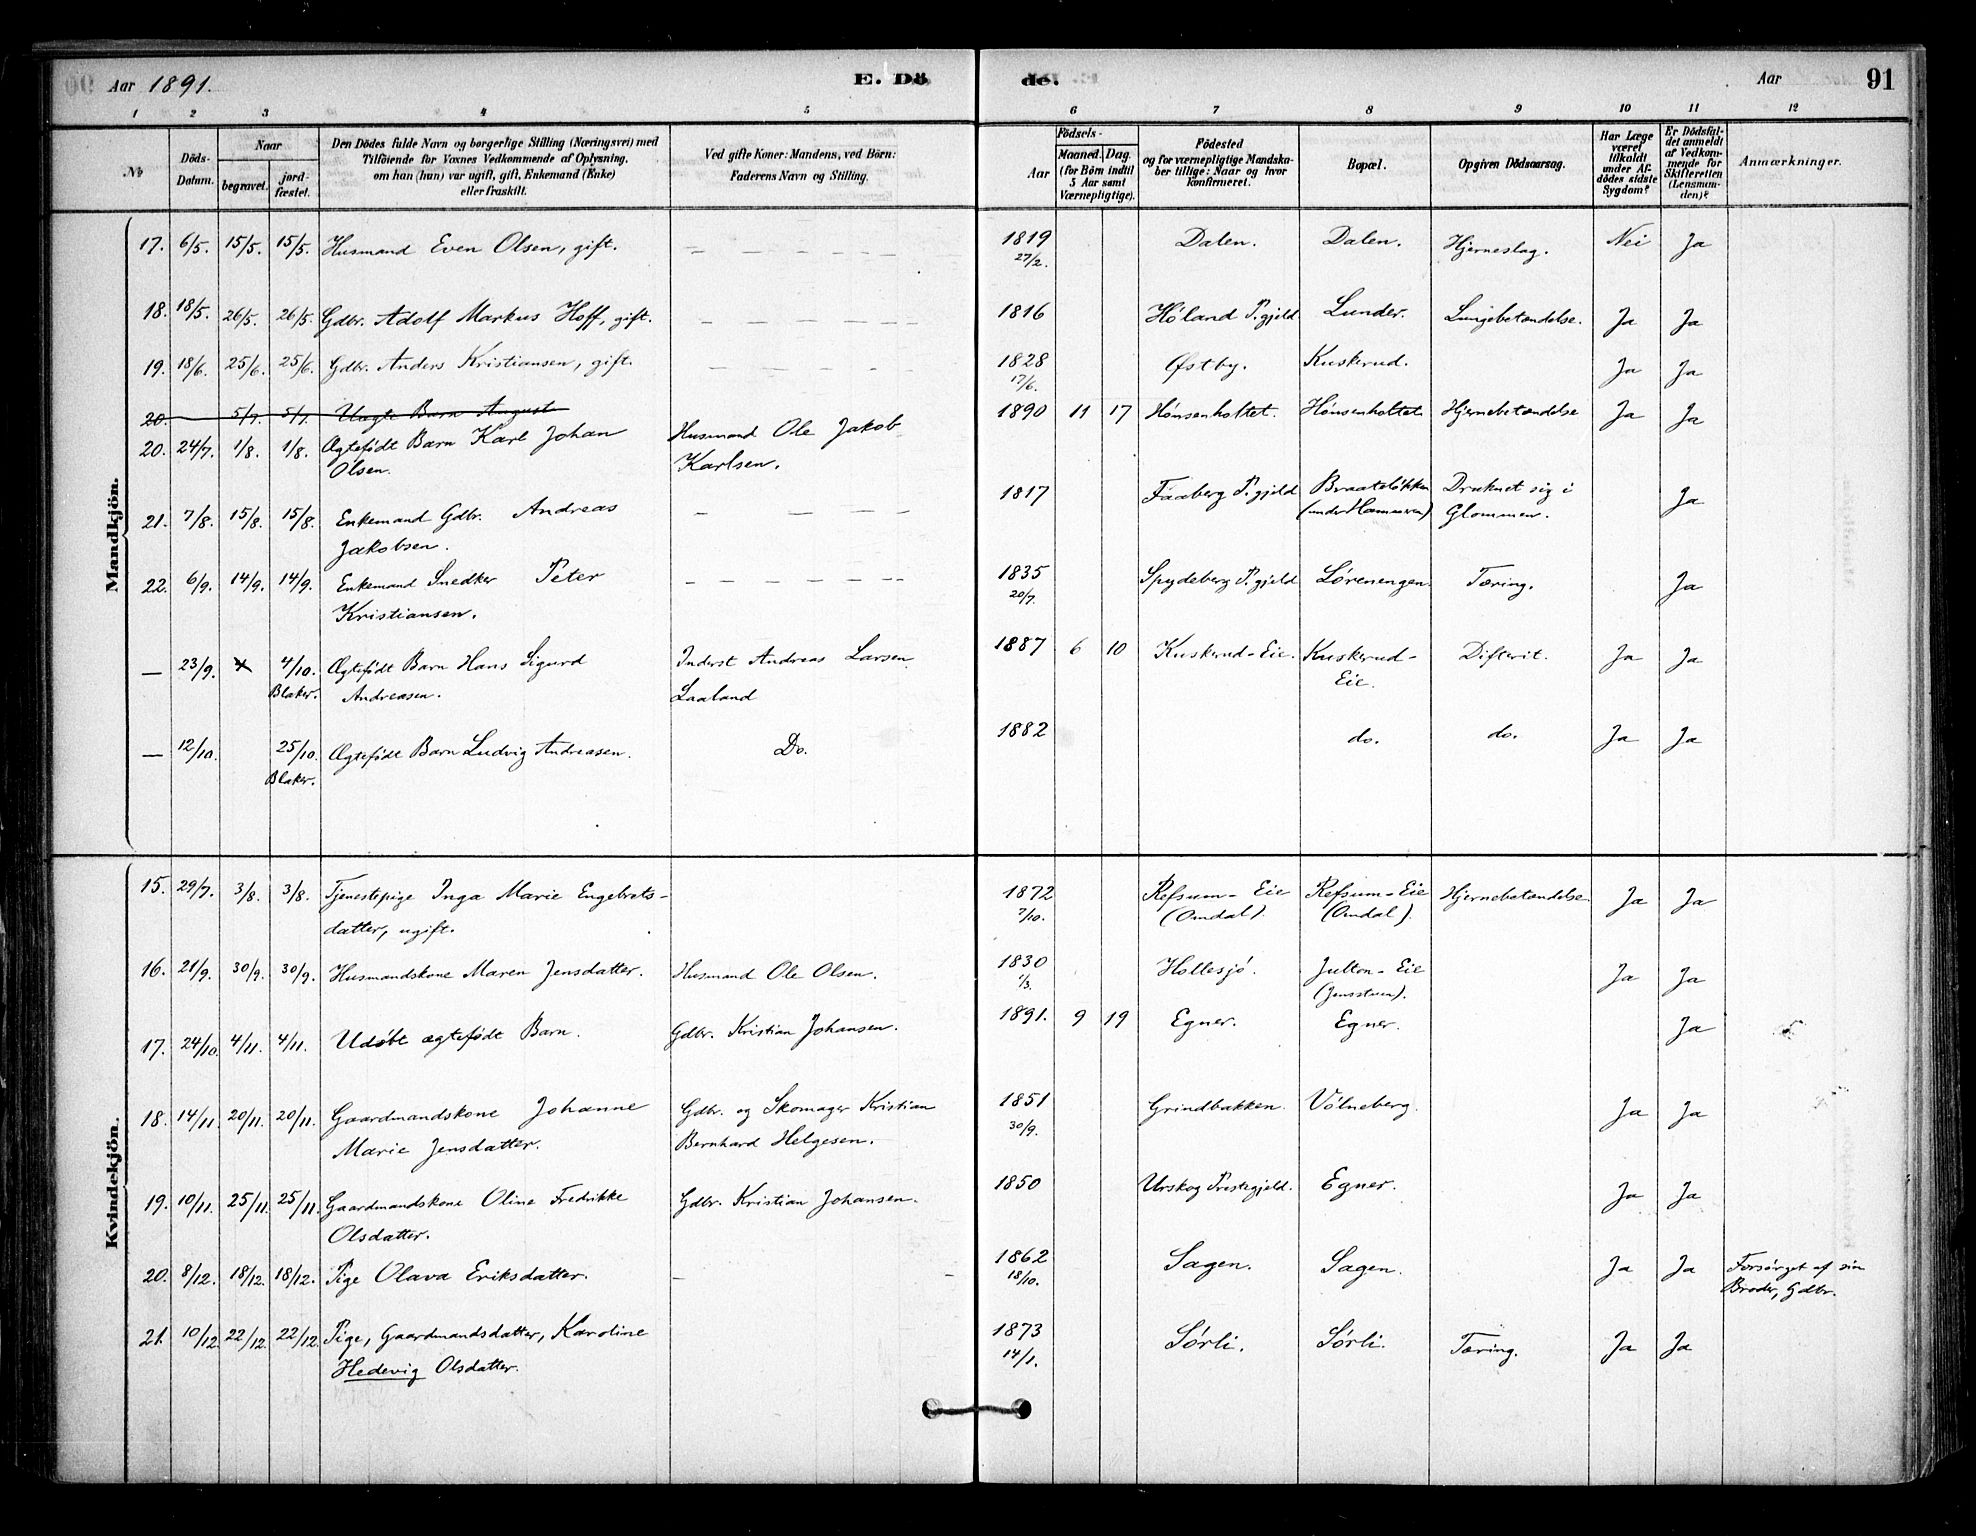 Aar 1891. E. Dö de. Aar 91
1 2 3 4 5 6 7 8 9 10 11 12
No Döds-Datum. Naar begravet. jord-fæstet. Den Dödes fulde Navn og borgerlige Stilling (Næringsvei) med Tilföiende for Voxnes Vedkommende af Oplysning, om han (hun) var ugift, gift, Enkemand (Enke) eller fraskilt. Ved gifte Koner: Mandens, ved Börn: Faderens Navn og Stilling. Aar Födsels- Maaned. Dag. (for Börn indtil 5 Aar samt Værnepligtige). Födested og for værnepligtige Mandska-ber tillige: Naar og hvor konfirmeret. Bopæl. Opgiven Dödsaarsag. Har Læge været tilkaldt under Af-dödes sidste Sygdom? Er Dödsfal-det anmeldt af Vedkom-mende for Skifteretten (Lensman-den)? Anmærkninger.
Mandkjön.
17. 6/5. 15/5. 15/5. Husmand Even Olsen, gift. 1819 27/2. Dalen. Dalen. Hjerneslag. Nei Ja
18. 18/5. 26/5. 26/5. Gdbr. Adolf Markus Hoff, gift. 1816 Höland P.gjeld Lunder. Lungebetændelse. Ja Ja
19. 18/6. 25/6. 25/6. Gdbr. Anders Kristiansen, gift. 1828 17/6. Østby. Kuskerud. Ja Ja
20. 5/7. 5/7. Uægte Barn August
20. 24/7. 1/8. 1/8. Ægtefödt Barn Karl Johan Husmand Ole Jakob 1890 11 17 Hönsenholtet. Hönsenholtet. Hjernebetændelse Ja Ja
Olsen. Karlsen.
21. 7/8. 15/8. 15/8. Enkemand Gdbr. Andreas 1817 Faaberg P.gjeld Braatelökken Druknet sig i Ja
Jakobsen. (under Hammeren) Glommen.
22. 6/9. 14/9. 14/9. Enkemand Snedker Peter 1835 20/7. Spydeberg P.gjeld Lörenengen. Tæring. Ja
Kristiansen.
— 23/9. 4/10. Ægtefödt Barn Hans Sigurd Inderst Andreas Larsen 1887 6 10 Kuskerud-Eie. Kuskerud- Difterit. Ja Ja
Blaker. Andreasen. Laaland Eie.
— 12/10. 25/10. Ægtefödt Barn Ludvig Andreasen. Do. 1882 do. do. Ja Ja
Blaker.
Kvindekjön.
15. 29/7. 3/8. 3/8. Tjenestepige Inga Marie Engebrets- 1872 7/10. Refsum-Eie Refsum-Eie Hjernebetændelse. Ja Ja
datter, ugift. (Omdal). (Omdal).
16. 21/9. 30/9. 30/9. Husmandskone Maren Jensdatter. Husmand Ole Olsen. 1830 1/3. Hollesjö. Julton-Eie Ja Ja
(Jensstuen).
17. 24/10. 4/11. 4/11. Udöbt ægtefödt Barn. Gdbr. Kristian Johansen. 1891. 9 19 Egner. Egner. Ja
18. 14/11. 20/11. 20/11. Gaardmandskone Johanne Gdbr. og Skomager Kristian 1851 30/9. Grindbakken. Völneberg. Ja Ja
Marie Jensdatter. Bernhard Helgesen.
19. 10/11. 25/11. 25/11. Gaardmandskone Oline Fredrikke Gdbr. Kristian Johansen. 1850 Urskog Prestegjeld. Egner. Ja Ja
Olsdatter.
20. 8/12. 18/12. 18/12. Pige Olava Eriksdatter. 1862 18/10. Sagen. Sagen. Ja Ja Forsörget af sin
Broder, Gdbr.
21. 10/12. 22/12. 22/12. Pige, Gaardmandsdatter, Karoline 1873 14/1. Sörli. Sörli. Tæring. Ja Ja
Hedevig Olsdatter.